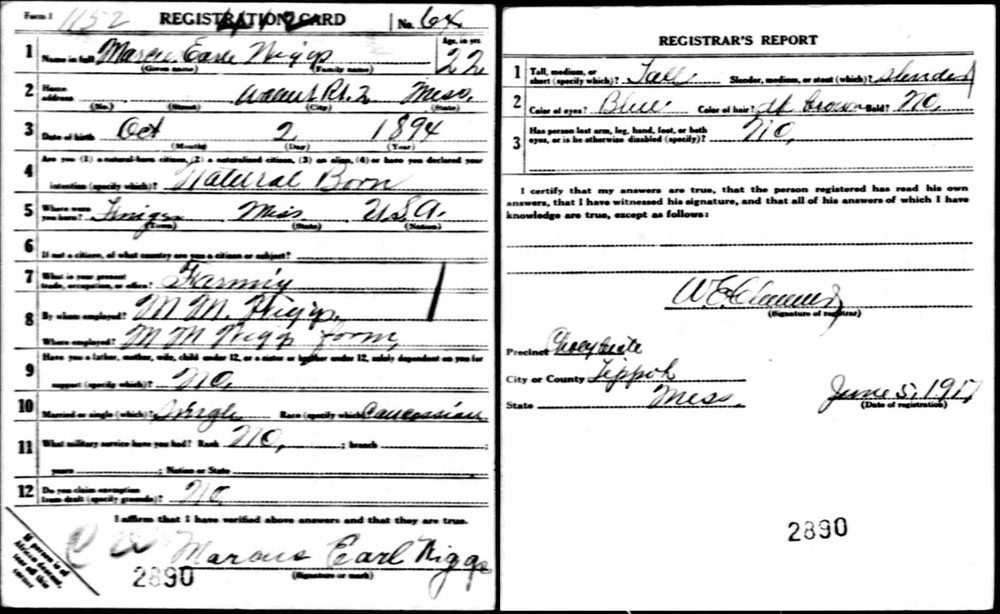 Form 1 1152 REGISTRATION CARD No. 64
1 Name in full Marcus Earle Wiggs Age, in yrs 22
(Given name) (Family name)
2 Home address Walnut Rt. 2 Miss.
(No.) (Street) (City) (State)
3 Date of birth Oct 2 1894
(Month) (Day) (Year)
4 Are you (1) a natural-born citizen, (2) a naturalized citizen, (3) an alien, (4) or have you declared your
intention (specify which)? Natural Born
5 Where were you born? Miss U.S.A.
(Town) (State) (Nation)
6 If not a citizen, of what country are you a citizen or subject?
7 What is your present trade, occupation, or office? Farming
8 By whom employed? M M.
Where employed? M M farm
9 Have you a father, mother, wife, child under 12, or a sister or brother under 12, solely dependent on you for
support (specify which)? No
10 Married or single (which)? Single Race (specify which)? Caucassian
11 What military service have you had? Rank No, ; branch ;
years ; Nation or State
12 Do you claim exemption from draft (specify grounds)? No
I affirm that I have verified above answers and that they are true.
Marcus Earl
(Signature or mark)
If person is of African descent, tear off this corner
2890
REGISTRAR'S REPORT
1 Tall, medium, or short (specify which)? Tall Slender, medium, or stout (which)? slender
2 Color of eyes? Blue Color of hair? dk brown Bald? No,
3 Has person lost arm, leg, hand, foot, or both eyes, or is he otherwise disabled (specify)? No,
I certify that my answers are true, that the person registered has read his own
answers, that I have witnessed his signature, and that all of his answers of which I have
knowledge are true, except as follows:
(Signature of registrar)
Precinct Chalybeate
City or County Tippah
State Miss. June 5, 1917
(Date of registration)
2890